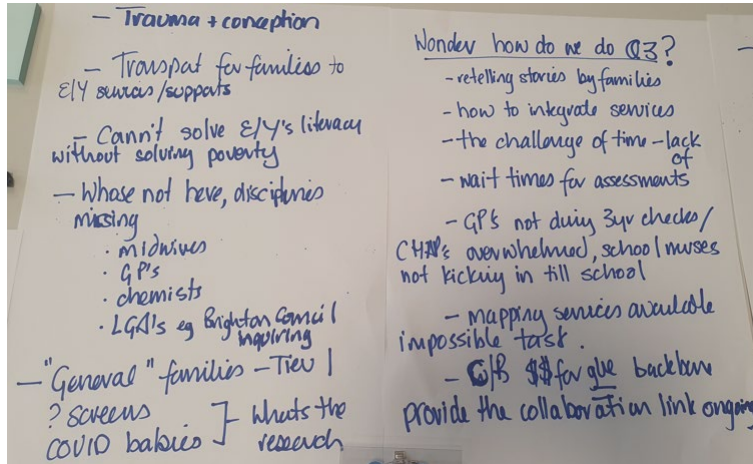 - Trauma + conception
- Transpat for families to
E/Y services/supports
- Cann't solve E/Y's literacy
without solving poverty
- Whose not here, disciplines
missing
· midwives
· GP's
· chemists
· LGA's eg Brighton Council
inquiring
- "General" families - Tier 1
? screens
COVID babies ] - whats the
research
Wonder how do we do Q3?
- retelling stories by families
- how to integrate services
- the challenge of time - lack
of
- wait times for assessments
- GP's not doing 3yr checks/
CHAPs overwhelmed, school nurses
not kicking in till school
- mapping services available
impossible task.
- $$ for glue backbone
provide the collaboration link ongoing